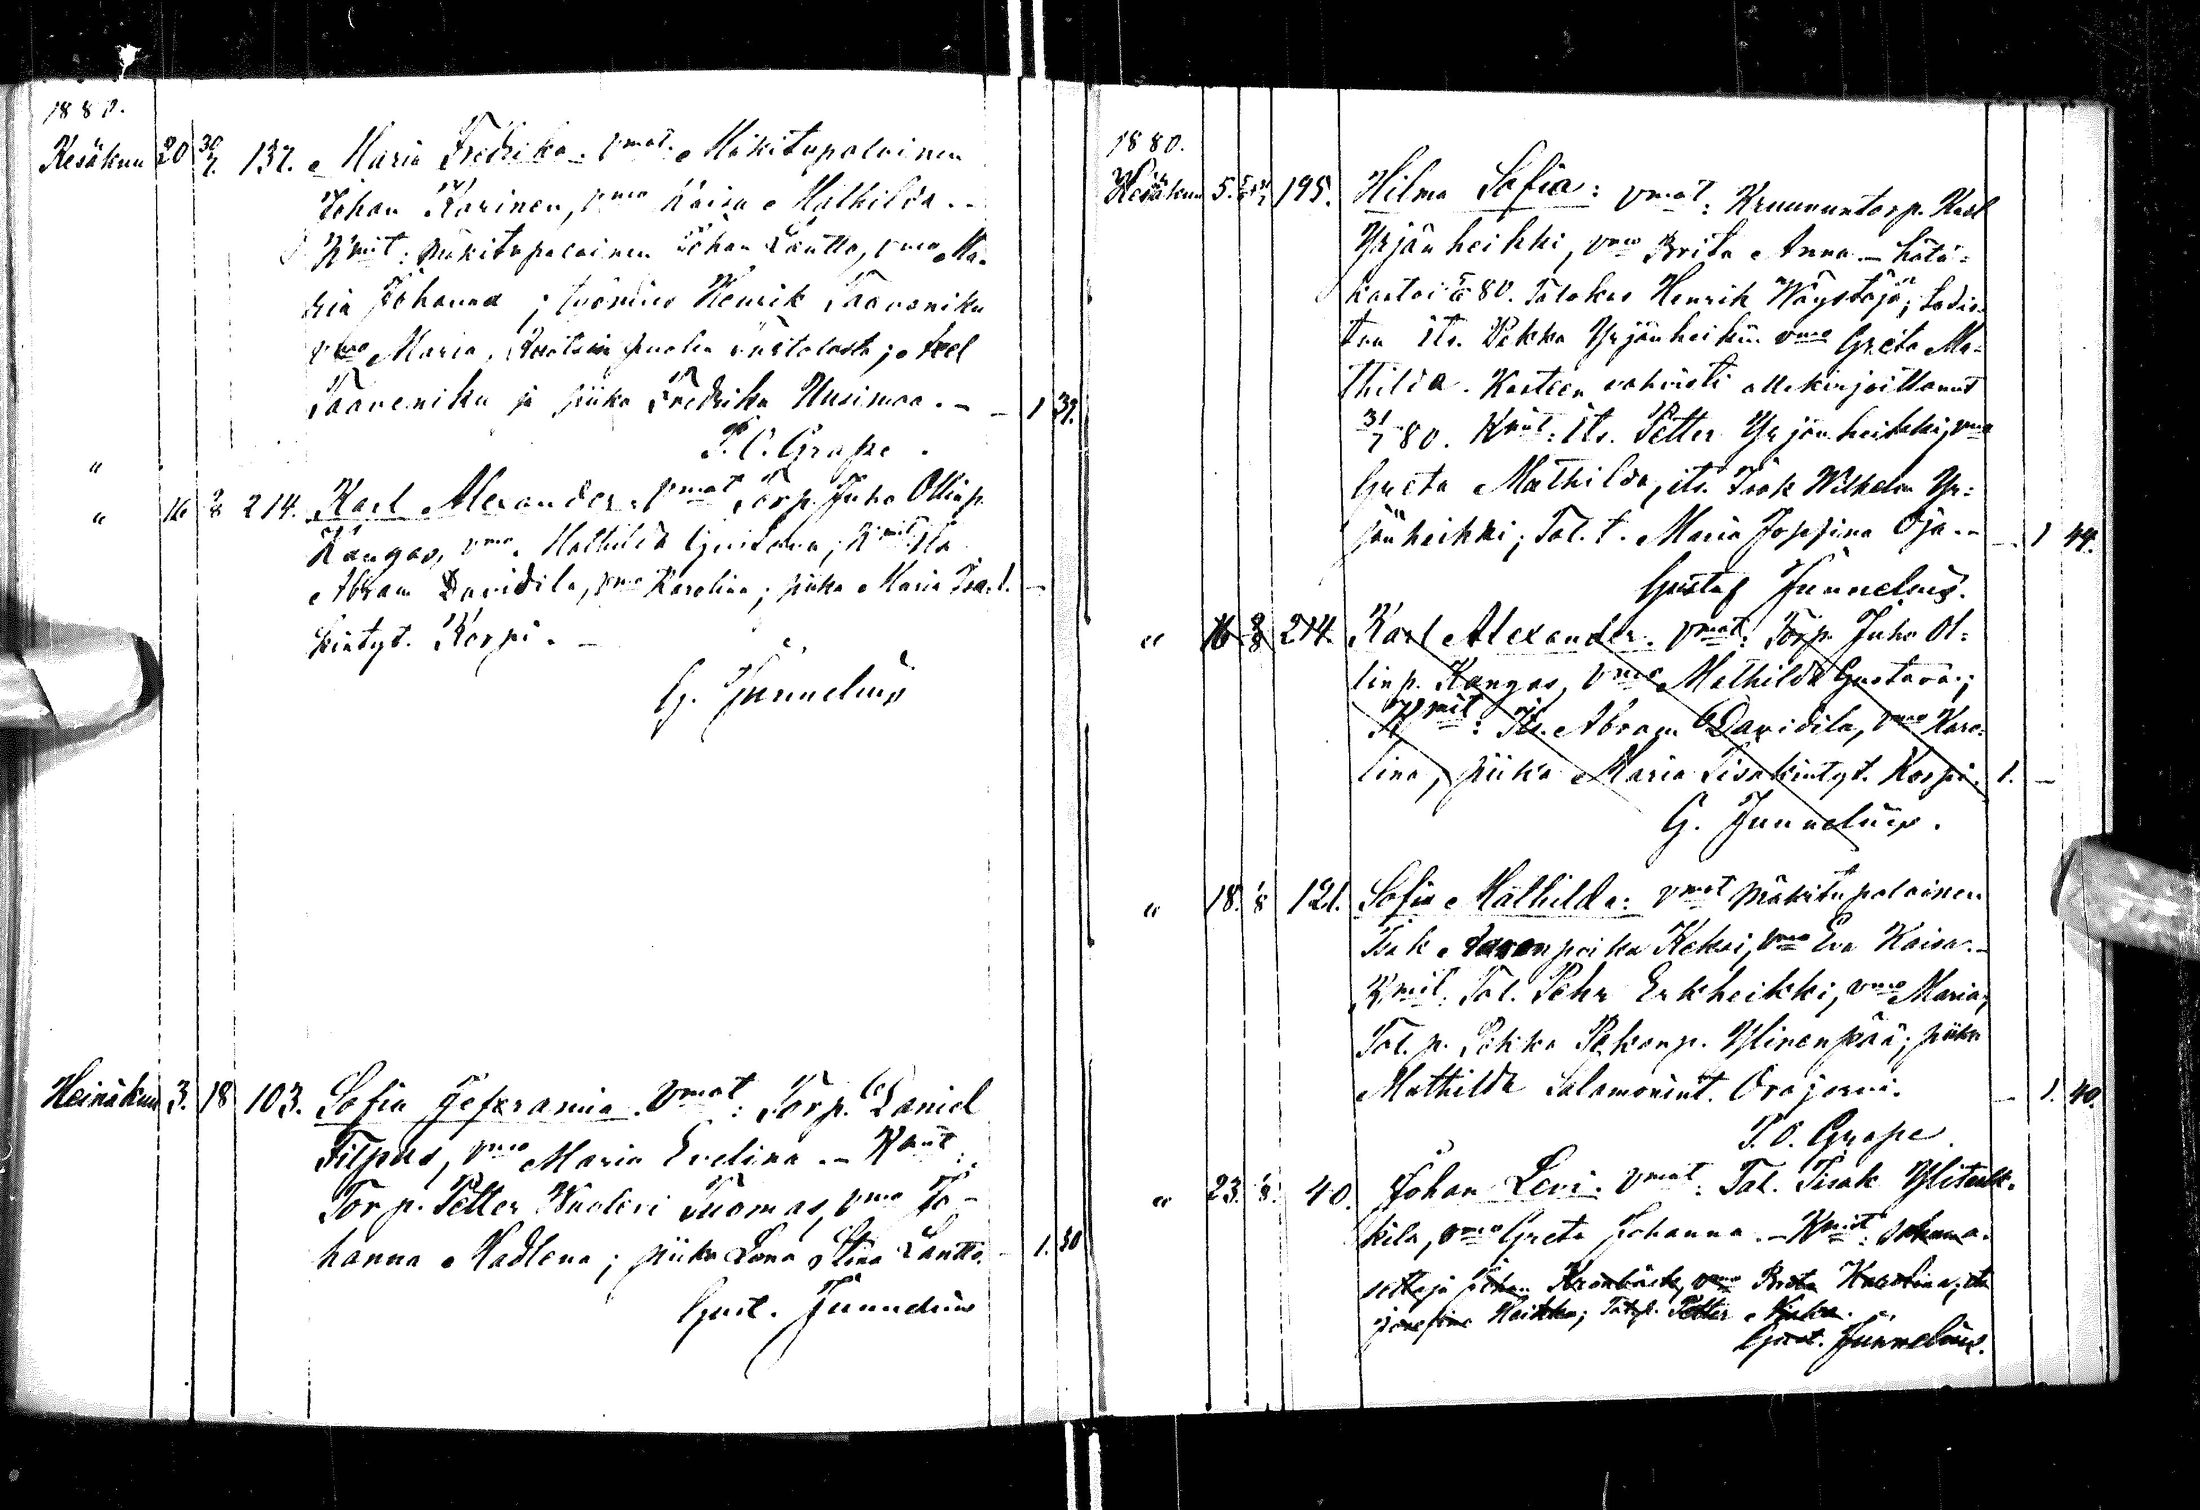 1880.
Kesäkuu 20 30/7. 137. Maria Fredrika. vmat. Mäkitupalainen
Johan Karinen, vmo Kaisa Mathilda. -
Kmit: Mäkitupalainen Johan Lantto, vmo Ma-
ria Johanna; Henrik Taavoniku
vmo Maria, puolen Axel
Taaveniku ja piika Fredrika Uusimaa. - - 1 37.
P. O. Grape.
"
" 16 2/8 214. Karl Alexander. vmat Torp. Juho Ollinp.
Kangas, vmo. Mathilda Gustava; Kmit Its.
Abram Davidila, vmo Karolina; piika Maria Isa. 1. -
kintyt. Korpi. -
G. Junnelius
Heinäkuu 3. 18 103. Sofia Jefrania. vmat: Torp. Daniel
Filpus, vmo Maria Evelina. - Kmit:
Torp. Petter Tuomas, vmo Jo-
hanna Madlena; piika Lena Stina Lantto. - 1. 30
Gust. Junnelius
1880.
Kesäkuu 5. 195. Hilma Sofia: vmat: Kruununtorp. Karl
Yrjänheikki, vmo Brita Anna - hätä-
kastoi 80. Talokas Henrik Väystäjä; todis-
tan its. Pekka Yrjänheikin vmo Greta Ma-
thilda. Kasteen vahvisti allekirjoittanut
31/7 80. Kmit: its. Petter Yrjänheikki, vmo
Greta Mathilda, its. Isak Wilhelm Yr-
jänheikki; Tal. t. Maria Josefina Oja. - - 1 44.
Gustaf Junnelius.
" 16 2/8 214. Karl Alexander. vmat: Torp. Juho Ol-
linp. Kangas, vmo Mathilda Gustava;
Kmit: Its. Abram Davidila, vmo Karo-
lina, piika Maria Iisakintyt. Korpi. 1. -
G. Junnelius.
" 18. 1/8 121. Sofia Mathilda: vmat Mäkitupalainen
Isak Aaronpoika Keksi, vmo Eva Kaisa. -
Kmit. Tal. Pehr Erkheikki, vmo Maria;
Tal. p. Pekka Pekanp. Ylinenpää; piika
Mathilda Salamonint. Orajärvi. - 1. 40.
P. O. Grape.
" 23. 1/8. 40. Johan Levi. vmat: Tal. Iisak Ylitalk-
kila, vmo Greta Johanna. - Kmit:
settaja Johan vmo Brita Karolina; its.
Josefina Heikka; Talp. Petter Niska.
Gust. Junnelius.